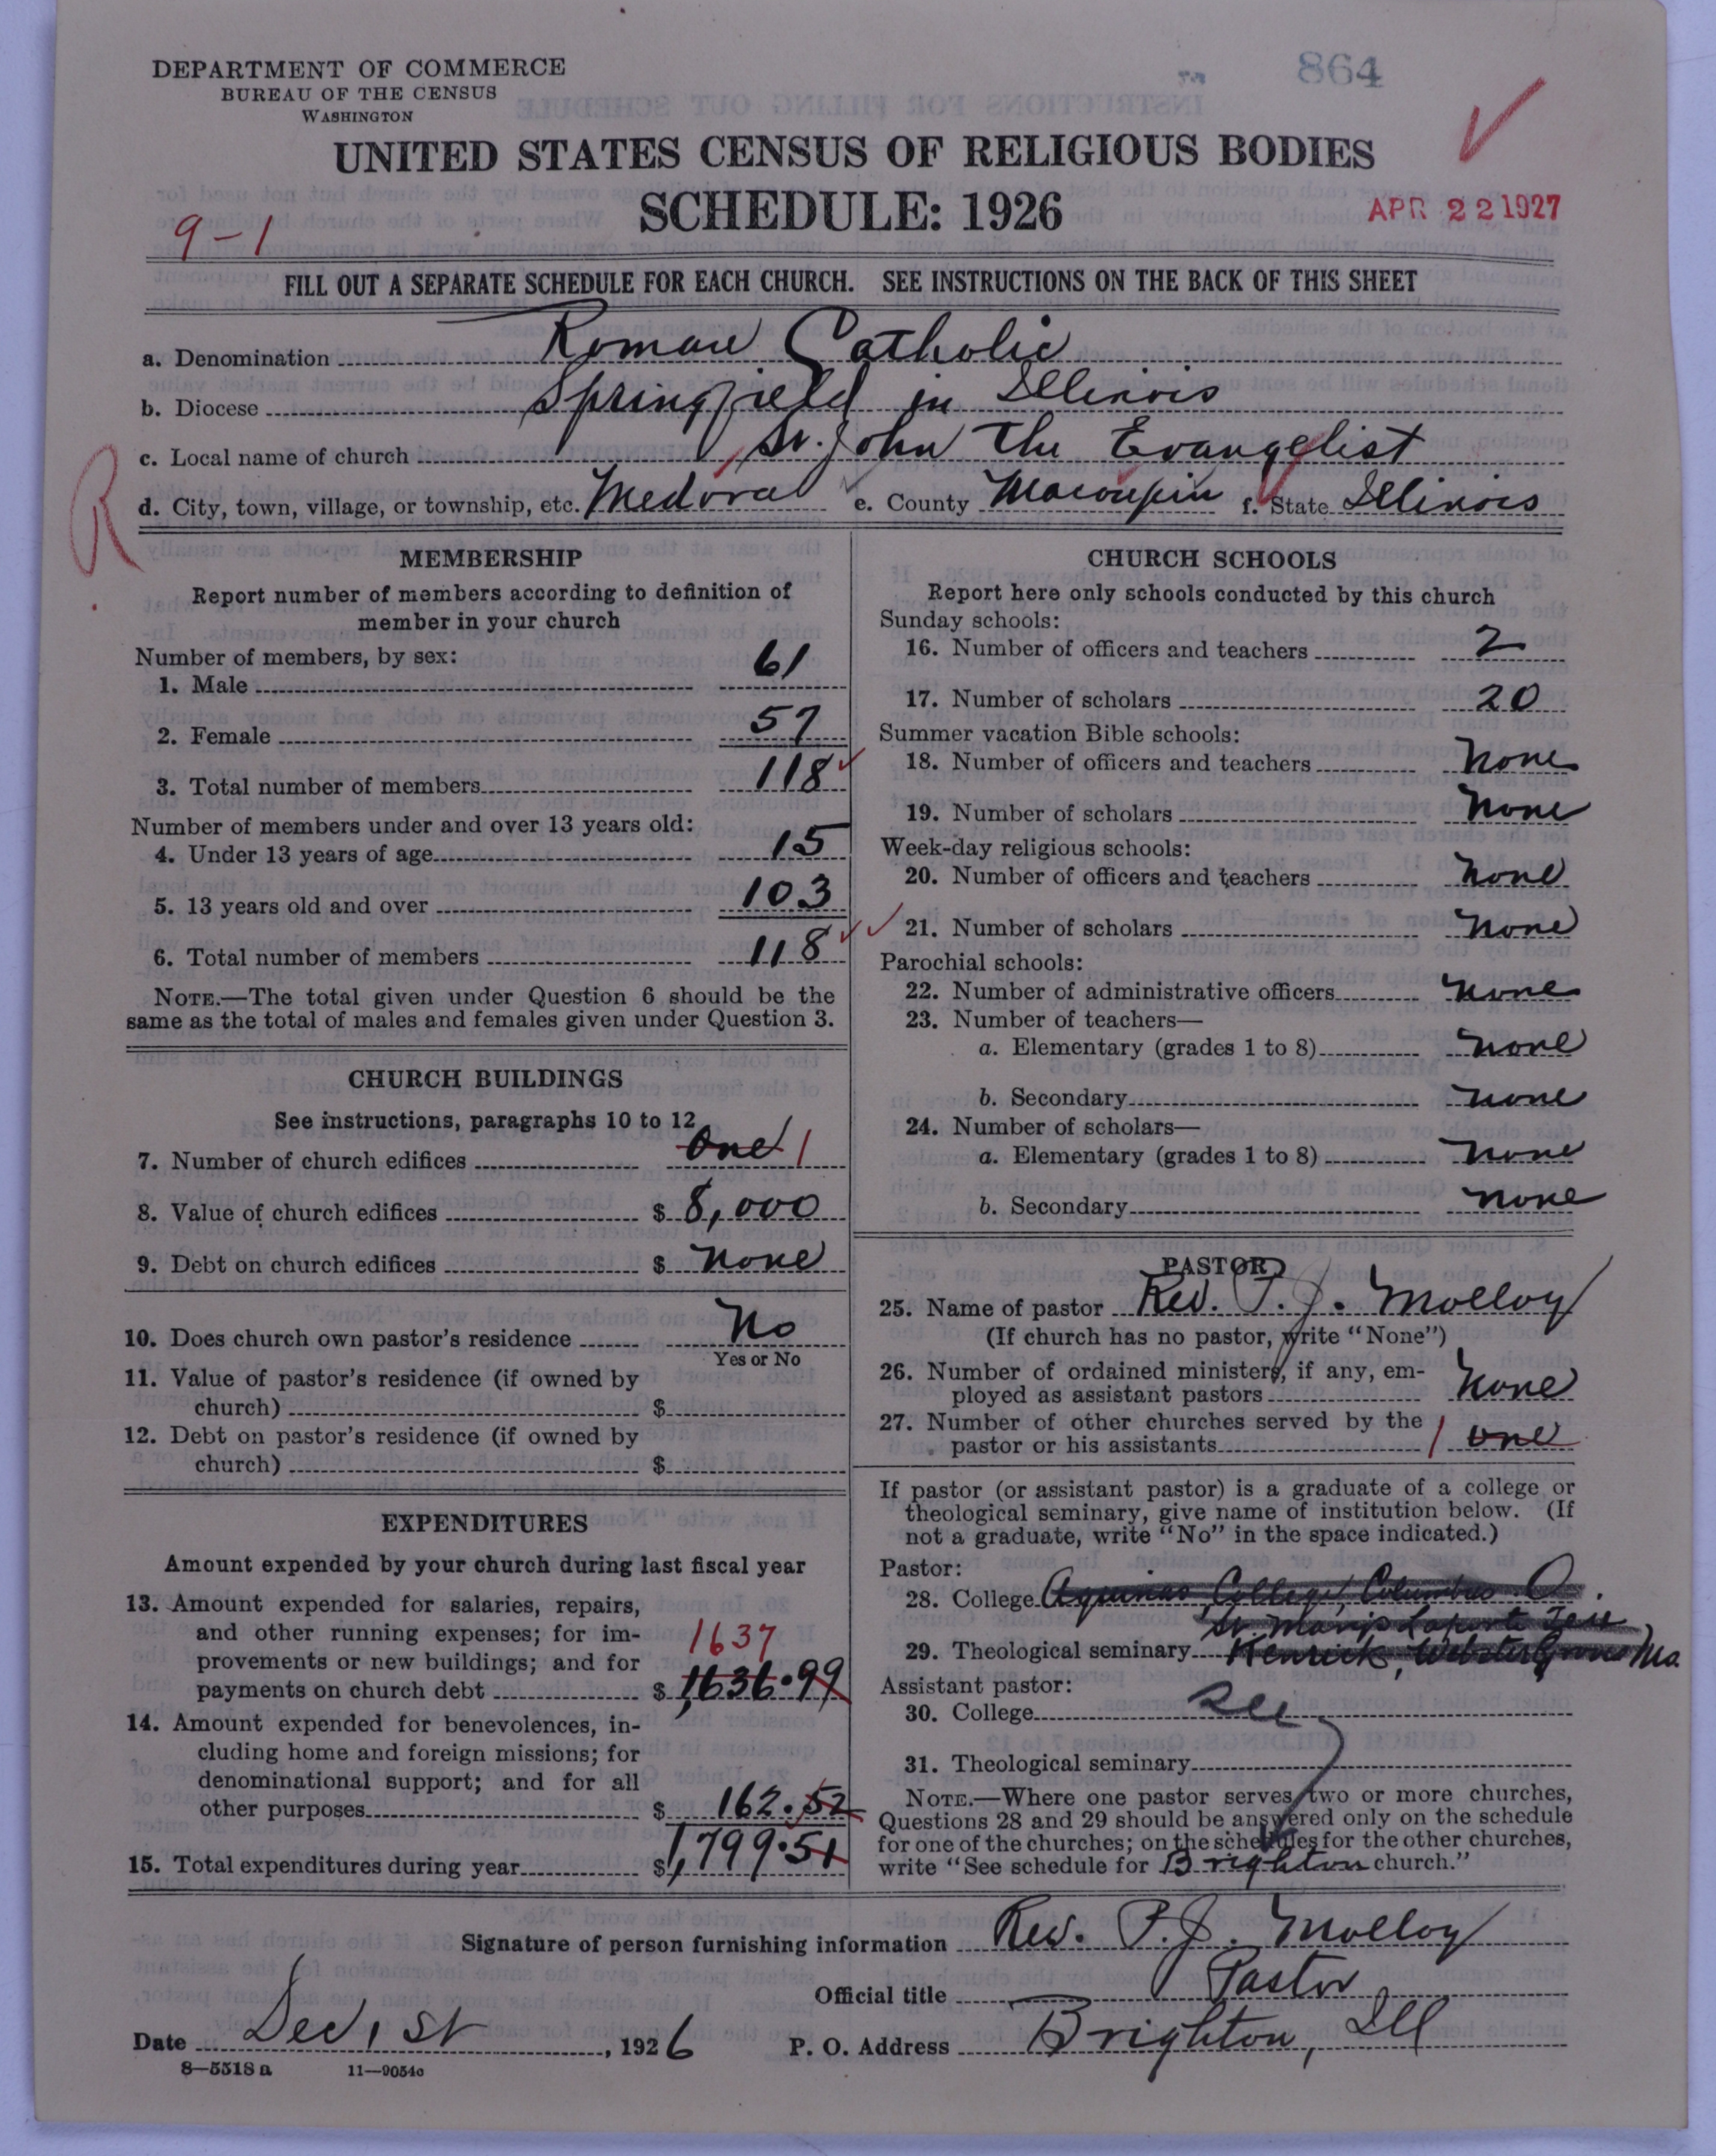 DEPARTMENT OF COMMERCE
BUREAU OF THE CENSUS
WASHINGTON
864
UNITED STATES CENSUS OF RELIGIOUS BODIES
SCHEDULE: 1926
APR 22 1927
9-1
FILL OUT A SEPARATE SCHEDULE FOR EACH CHURCH. SEE INSTRUCTIONS ON THE BACK OF THIS SHEET
a. Denomination Roman Catholic
b. Diocese Springfield in Illinois
c. Local name of church St. John the Evangelist
R
d. City, town, village, or township, etc. Medora e. County Macoupin f. State Illinois
MEMBERSHIP
Report number of members according to definition of
member in your church
Number of members, by sex:
1. Male 61
2. Female 57
3. Total number of members 118
Number of members under and over 13 years old:
4. Under 13 years of age 15
5. 13 years old and over 103
6. Total number of members 118
NOTE.—The total given under Question 6 should be the
same as the total of males and females given under Question 3.
CHURCH BUILDINGS
See instructions, paragraphs 10 to 12
7. Number of church edifices One 1
8. Value of church edifices $ 8,000
9. Debt on church edifices $ none
10. Does church own pastor's residence No
Yes or No
11. Value of pastor's residence (if owned by
church) $
12. Debt on pastor's residence (if owned by
church) $
EXPENDITURES
Amount expended by your church during last fiscal year
13. Amount expended for salaries, repairs,
and other running expenses; for im-
provements or new buildings; and for
1637
payments on church debt $ 1636.99
14. Amount expended for benevolences, in-
cluding home and foreign missions; for
denominational support; and for all
other purposes $ 162.52
15. Total expenditures during year $ 1,799.51
CHURCH SCHOOLS
Report here only schools conducted by this church
Sunday schools:
16. Number of officers and teachers 2
17. Number of scholars 20
Summer vacation Bible schools:
18. Number of officers and teachers None
19. Number of scholars None
Week-day religious schools:
20. Number of officers and teachers None
21. Number of scholars None
Parochial schools:
22. Number of administrative officers none
23. Number of teachers—
a. Elementary (grades 1 to 8) none
b. Secondary none
24. Number of scholars—
a. Elementary (grades 1 to 8) none
b. Secondary none
PASTOR
25. Name of pastor Rev. P. J. Molloy
(If church has no pastor, write "None")
26. Number of ordained ministers, if any, em-
ployed as assistant pastors None
27. Number of other churches served by the
pastor or his assistants 1 one
If pastor (or assistant pastor) is a graduate of a college or
theological seminary, give name of institution below. (If
not a graduate, write "No" in the space indicated.)
Pastor:
28. College Aquinas College, Columbus O.
St. Mary's Laporte Tex
29. Theological seminary Kenrick, Webster Groves Mo.
Assistant pastor:
30. College See
31. Theological seminary
NOTE.—Where one pastor serves two or more churches,
Questions 28 and 29 should be answered only on the schedule
for one of the churches; on the schedules for the other churches,
write "See schedule for Brighton church."
Signature of person furnishing information Rev. P. J. Molloy
Official title Pastor
Date Dec, 1st, 1926 P. O. Address Brighton, Ill
8—5518 a 11—9054c